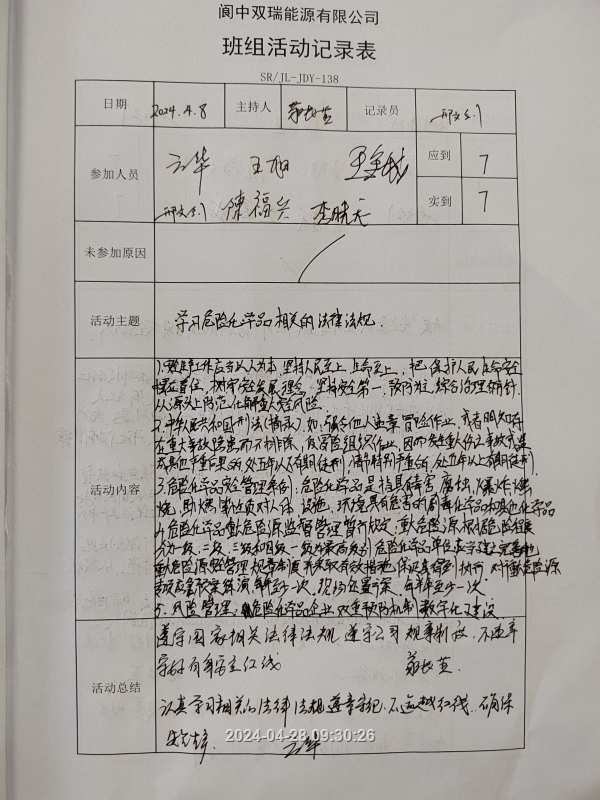 阆中双瑞能源有限公司
班组活动记录表
SR/JL-JDY-138
日期 2024.4.8 主持人 记录员
参加人员 王华 王旭 应到 7
陈福兴 李晓天 实到 7
未参加原因
活动主题 学习危险化学品相关的法律法规.
活动内容
1.安全生产工作应当以人为本,坚持人民至上、生命至上,把保护人民生命安全
摆在首位,树牢安全发展理念,坚持安全第一、预防为主、综合治理的方针,
从源头上防范化解重大安全风险.
2.中华人民共和国刑法(摘录),如:强令他人违章冒险作业,或者明知存
在重大事故隐患而不排除,仍冒险组织作业,因而发生重大伤亡事故或造
成其他严重后果的,处五年以下有期徒刑,情节特别严重的,处五年以上有期徒刑.
3.危险化学品安全管理条例:危险化学品是指具有毒害、腐蚀、爆炸、燃
烧、助燃等性质对人体、设施、环境具有危害的剧毒化学品和其他化学品
4.危险化学品重大危险源监督管理暂行规定,重大危险源根据危险程度
分为一级、二级、三级和四级,一级为最高级别,危险化学品单位应当建立完善
重大危险源安全管理规章制度 并采取有效措施保证其得到执行,对重大危险源
专项应急预案演练,每年至少一次,现场处置方案,每半年至少一次.
5.风险管理、危险化学品企业双重预防机制数字化建设
活动总结
遵守国家相关法律法规 遵守公司规章制度,不违章
红线
认真学习相关的法律法规遵章守纪,不逾越红线,确保
安全
2024-04-28 09:30:26